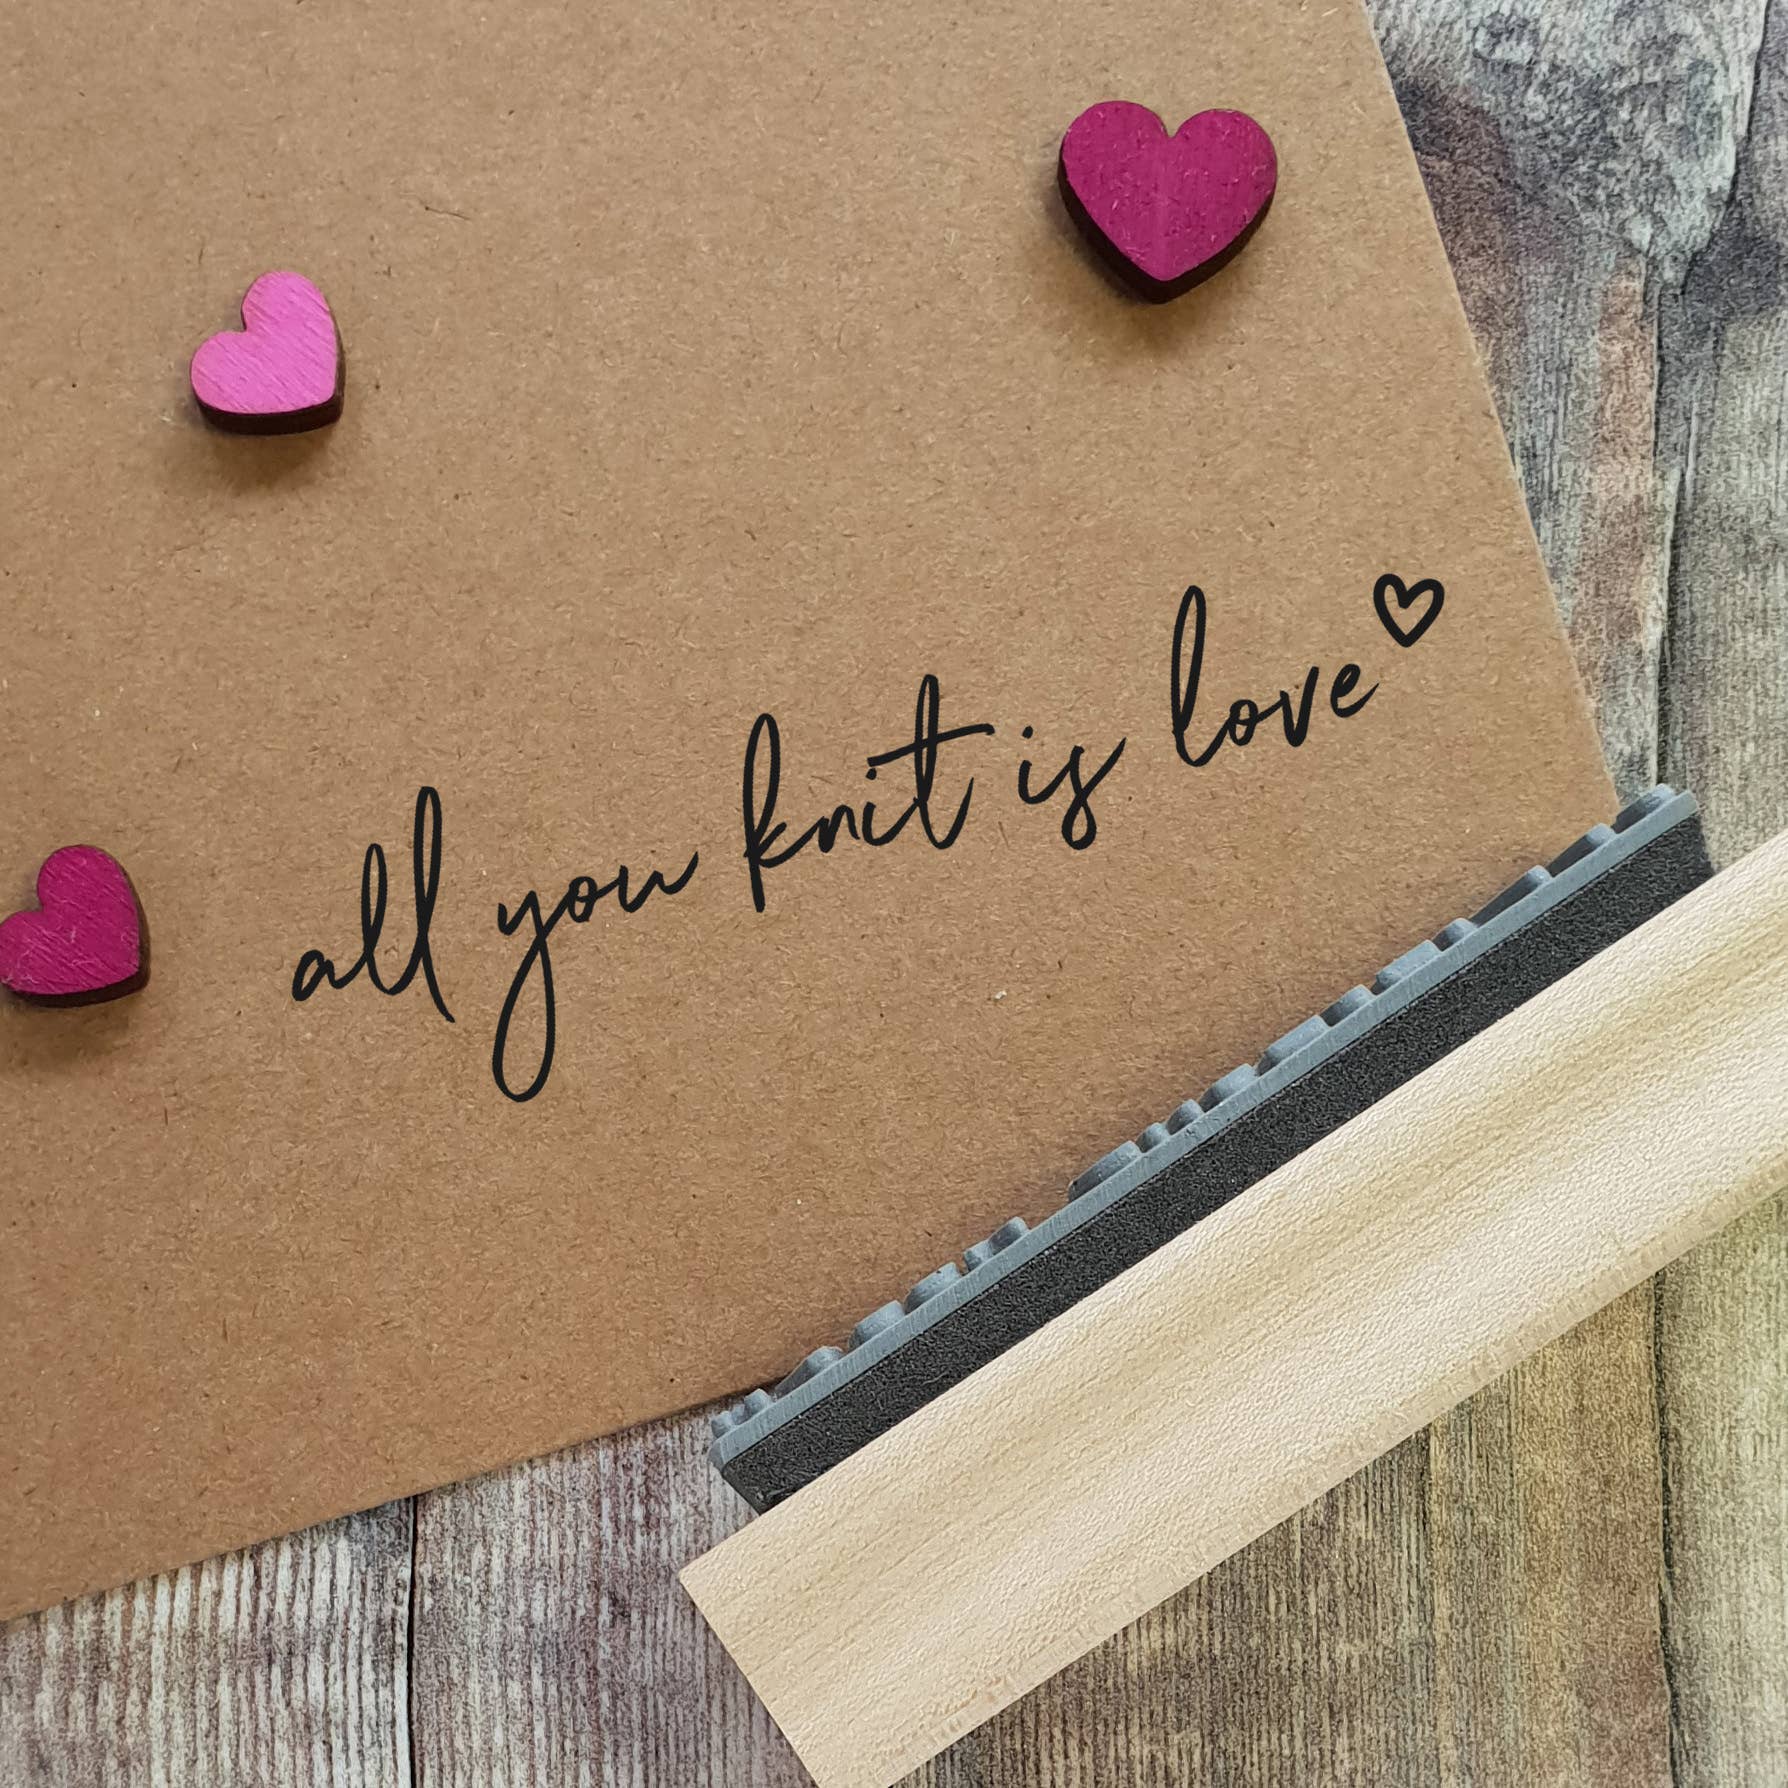 all you knit is love